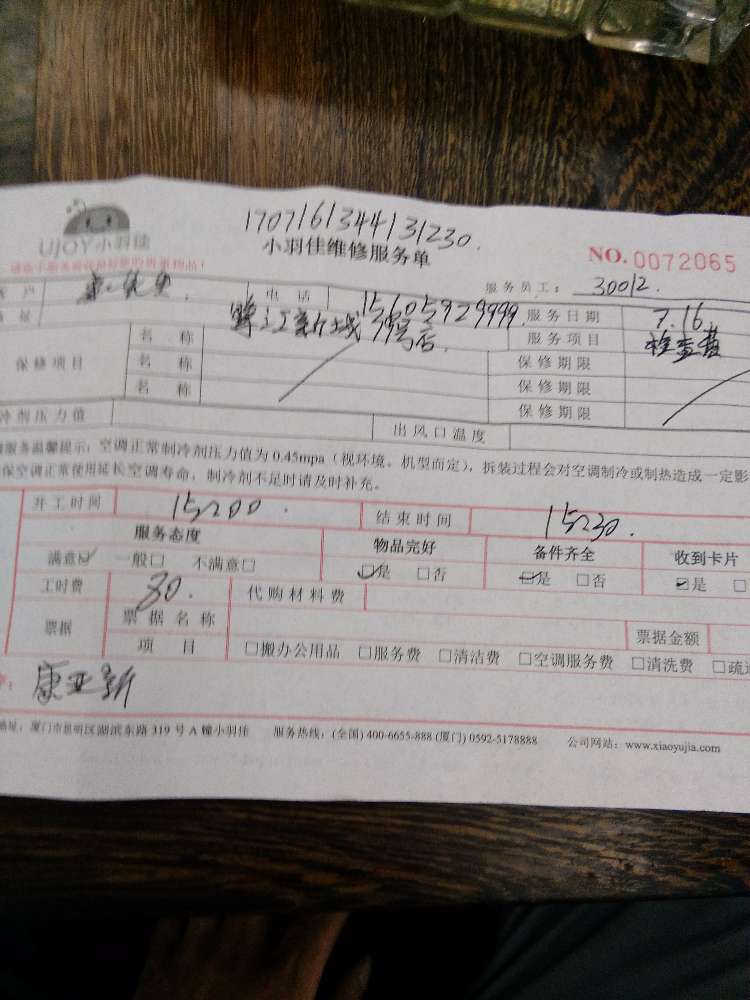 1707161344131230.
UJOY小羽佳
小羽佳维修服务单
NO.0072065
服务员工: 30012.
客户 电话 15605929999. 服务日期 7.16.
址 新城 99号店. 服务项目 检查费
保修项目 名称 保修期限
名称 保修期限
名称 保修期限
冷剂压力值 出风口温度
服务温馨提示:空调正常制冷剂压力值为0.45mpa(视环境、机型而定),拆装过程会对空调制冷或制热造成一定影
保空调正常使用延长空调寿命,制冷剂不足时请及时补充。
开工时间 15:00. 结束时间 15:30.
服务态度 物品完好 备件齐全 收到卡片
满意☑ 一般□ 不满意□ ☑是 □否 ☑是 □否 ☑是 □
工时费 30. 代购材料费
票据 票据名称 票据金额
项目 □搬办公用品 □服务费 □清洁费 □空调服务费 □清洗费 □疏
康亚新
地址:厦门市思明区湖滨东路319号A幢小羽佳 服务热线:(全国)400-6655-888 (厦门)0592-5178888 公司网站:www.xiaoyujia.com